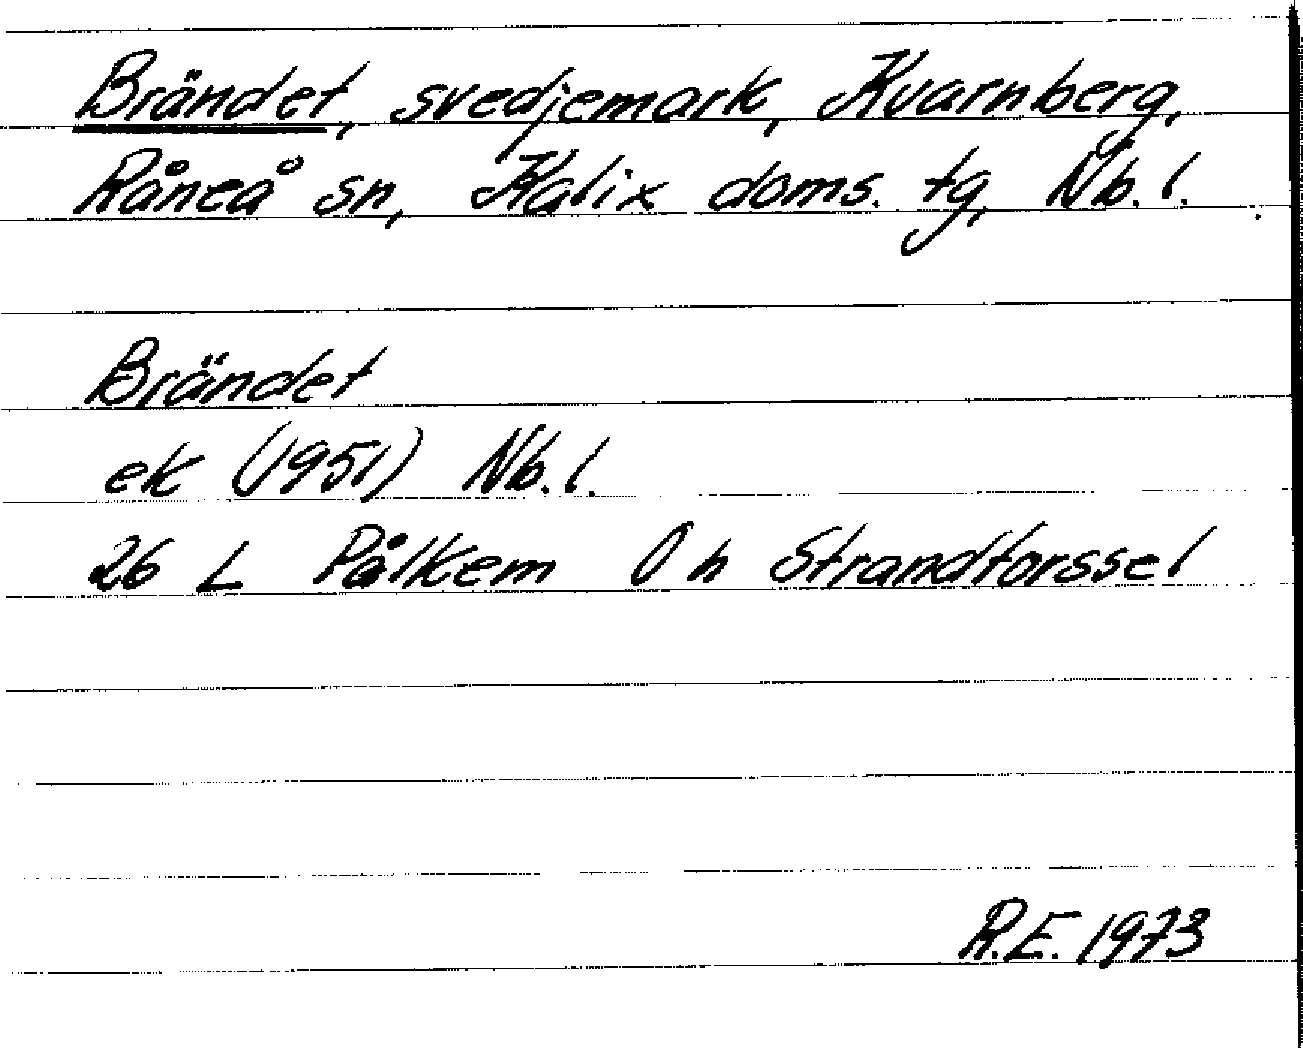 Brändet, svedjemark, Kvarnberg,
Råneå sn, Kalix doms. tg, Nb. l.
Brändet
ek (1951) Nb. l.
26 L Pålkem O h Strandforssel
R.E. 1973